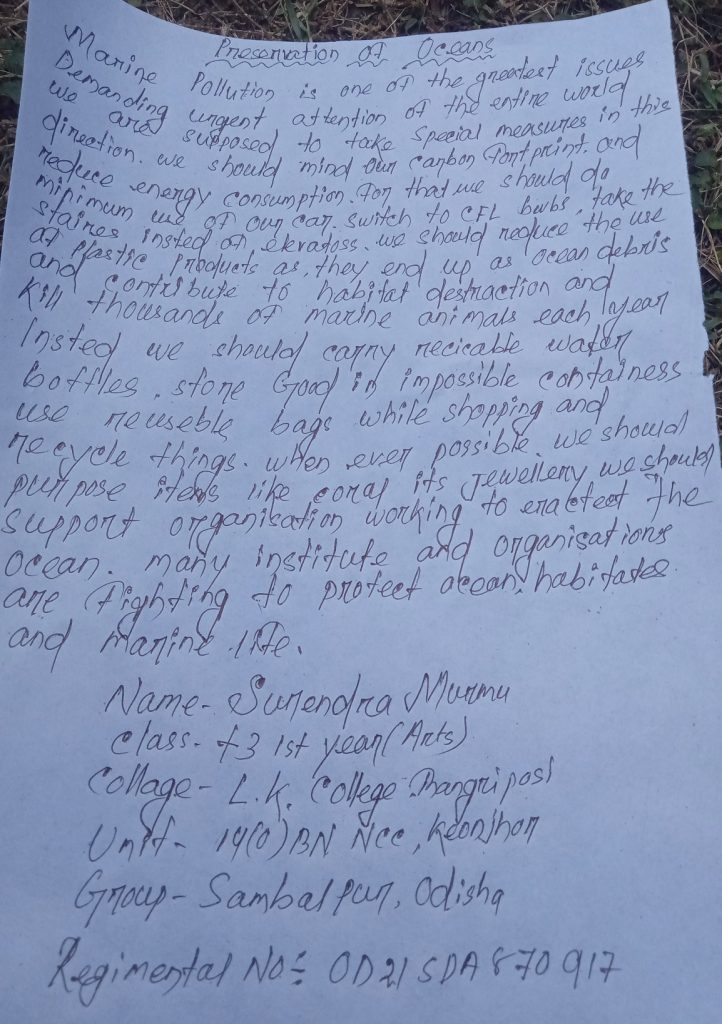 Preservation of Oceans
Marine Pollution is one of the greatest issues
Demanding urgent attention of the entire world
we are supposed to take special measures in this
direction. we should mind our carbon Footprint. and
reduce energy consumption. For that we should do
minimum use of our car. switch to CFL bulbs, take the
staires insted of, we should reduce the use
of Plastic Products as, they end up as ocean debris
and contribute to habitat destraction and
kill thousands of marine animals each year
Insted we should carry recicable water
bottles. store Good in impossible containess
use reuseble bags while shopping and
recycle things. when ever possible. we should
purpose items like coral its Jewellery we should
support organisation working to the
ocean. many institute and organisations
are fighting to protect ocean, habitates
and marine life.
Name- Surendra Murmu
Class- +3 1st year (Arts)
Collage- L.K. College Bangriposi
Unit- 14(O) BN Ncc, Keonjhor
Group- Sambalpur, Odisha
Regimental No:- OD21SDA870917